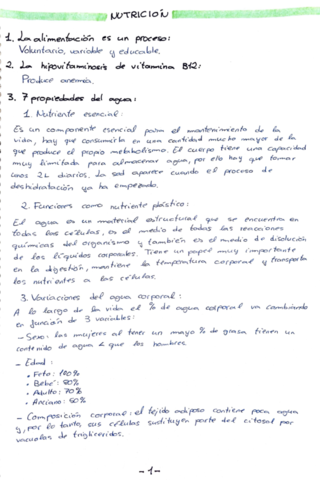 NUTRICIÓN
1. La alimentación es un proceso:
Voluntario, variable y educable.
2. La hipovitaminosis de vitamina B12:
Produce anemia.
3. 7 propiedades del agua:
1. Nutriente esencial:
Es un componente esencial para el mantenimiento de la
vida, hay que consumirla en una cantidad mucho mayor de la
que produce el propio metabolismo. El cuerpo tiene una capacidad
muy limitada para almacenar agua, por ello hay que tomar
unos 2L diarios. La sed aparece cuando el proceso de
deshidratación ya ha empezado.
2. Funciones como nutriente plástico:
El agua es un material estructural que se encuentra en
todas las células, es el medio de todas las reacciones
químicas del organismo y también es el medio de disolución
de los líquidos corporales. Tiene un papel muy importante
en la digestión, mantiene la temperatura corporal y transporta
los nutrientes a las células.
3. Variaciones del agua corporal:
A lo largo de la vida el % de agua corporal va cambiando
en función de 3 variables:
- Sexo: las mujeres al tener un mayo % de grasa tienen un
contenido de agua < que los hombres
- Edad:
• Feto: 100%
• Bebé: 80%
• Adulto: 70%
• Anciano: 50%
- Composición corporal: el tejido adiposo contiene poca agua
y, por lo tanto, sus células sustituyen parte del citosol por
vacuolas de triglicéridos.
-1-